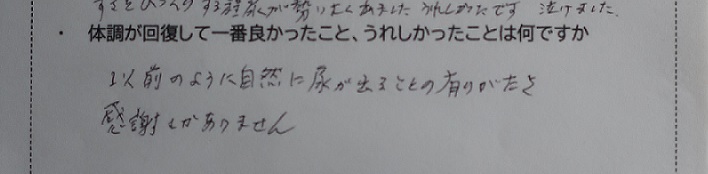 する程尿が勢いよくあました うれしかったです 泣けました.
・ 体調が回復して一番良かったこと、うれしかったことは何ですか
以前のように自然に尿が出ることの有りがたさ
感謝しかありません